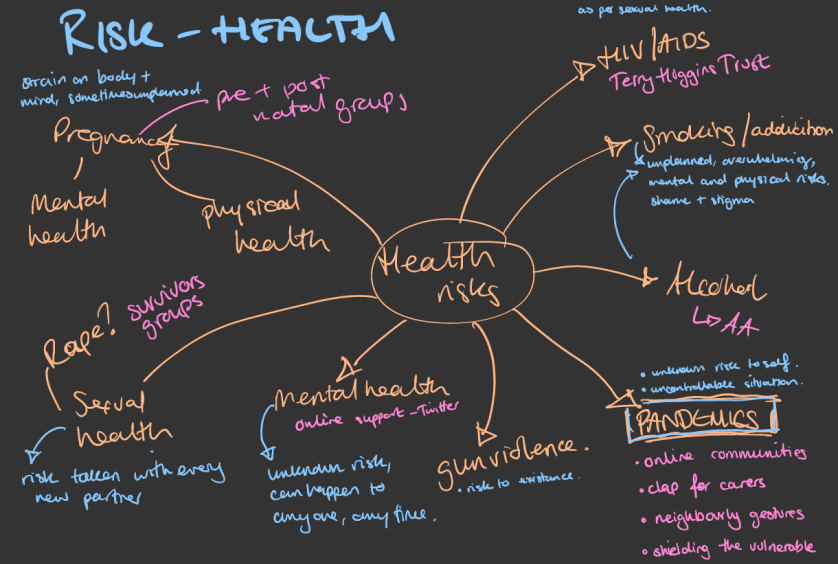 RISK - HEALTH
as per sexual health.
HIV/AIDS
Terry Higgins Trust
strain on body +
mind, sometimes unplanned
pre + post
natal groups
Pregnancy
Mental
health
physical
health
Smoking/addiction
unplanned, overwhelming,
mental and physical risks.
shame + stigma
Health
risks
Alcohol
AA
Rape?
survivors
groups
Sexual
health
risk taken with every
new partner
Mental health
online support - Twitter
unknown risk,
can happen to
anyone, any time.
gun violence.
• risk to existence.
• unknown risk to self.
• uncontrollable situation.
PANDEMICS
• online communities
• clap for carers
• neighbourly gestures
• shielding the vulnerable